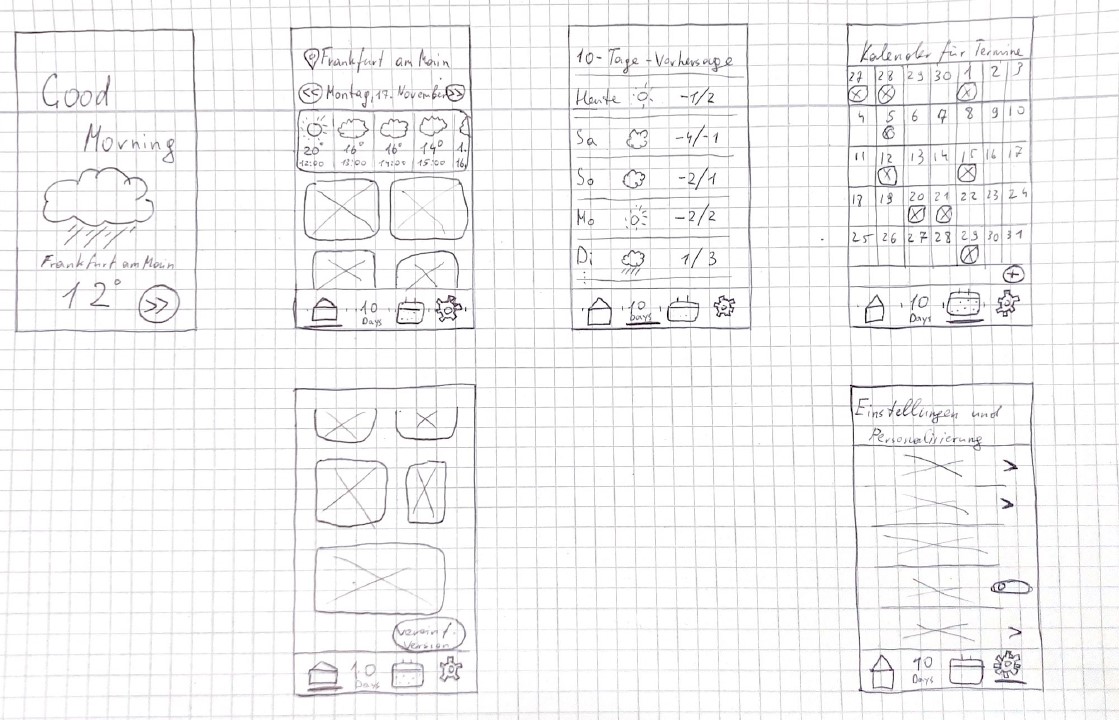 Good
Morning
Frankfurt am Main
12°
>>
Frankfurt am Main
<< Montag, 17. November >>
20° 16° 16° 14° 1.
12:00 13:00 14:00 15:00 16
10 Days
10-Tage-Vorhersage
Heute -1/2
Sa -4/-1
So -2/1
Mo -2/2
Di 1/3
10 Days
Kalender für Termine
27 28 29 30 1 2 3
4 5 6 7 8 9 10
11 12 13 14 15 16 17
18 19 20 21 22 23 24
25 26 27 28 29 30 31
+
10 Days
Version
10 Days
Einstellungen und
Personalisierung
>
>
>
10 Days